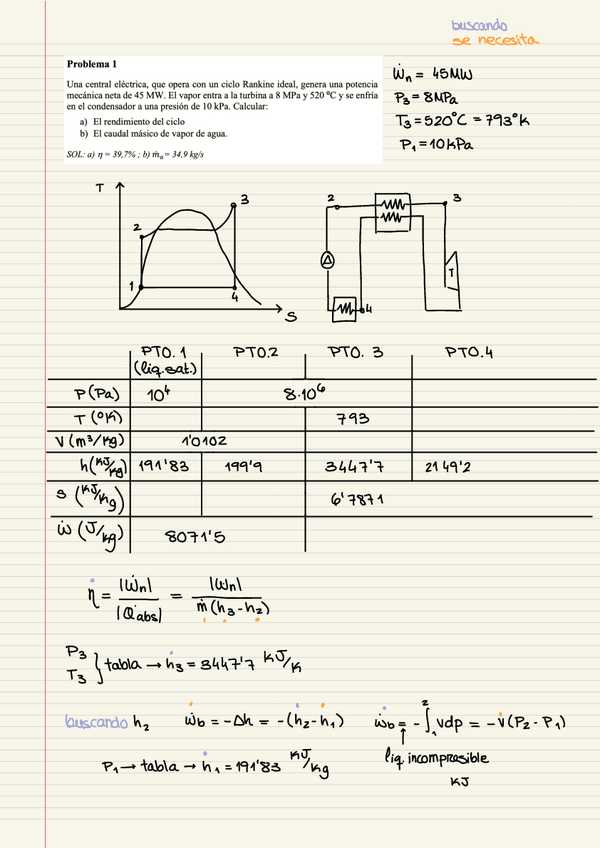 buscando
se necesita
Problema 1
Una central eléctrica, que opera con un ciclo Rankine ideal, genera una potencia
mecánica neta de 45 MW. El vapor entra a la turbina a 8 MPa y 520 ºC y se enfría
en el condensador a una presión de 10 kPa. Calcular:
a) El rendimiento del ciclo
b) El caudal másico de vapor de agua.
SOL: a) η = 39,7% ; b) ṁa = 34,9 kg/s
Ẇn = 45MW
P3 = 8MPa
T3 = 520°C = 793°K
P1 = 10kPa
T
3
2
1
4
S
2
3
T
4
PTO. 1 PTO.2 PTO. 3 PTO.4
(liq.sat.)
P (Pa) 10⁴ 8·10⁶
T (°K) 793
V (m³/kg) 1'0102
h (KJ/kg) 191'83 199'9 3447'7 2149'2
s (KJ/kg) 6'7871
ẇ (J/kg) 8071'5
η = |Ẇn| / |Q̇abs| = |Ẇn| / ṁ (h3 - h2)
P3
T3 } tabla → h3 = 3447'7 KJ/K
buscando h2 ẇb = -Δh = -(h2 - h1) ẇb = -∫₁² vdp = -v (P2 - P1)
liq incomprasible
P1 → tabla → h1 = 191'83 KJ/kg
KJ